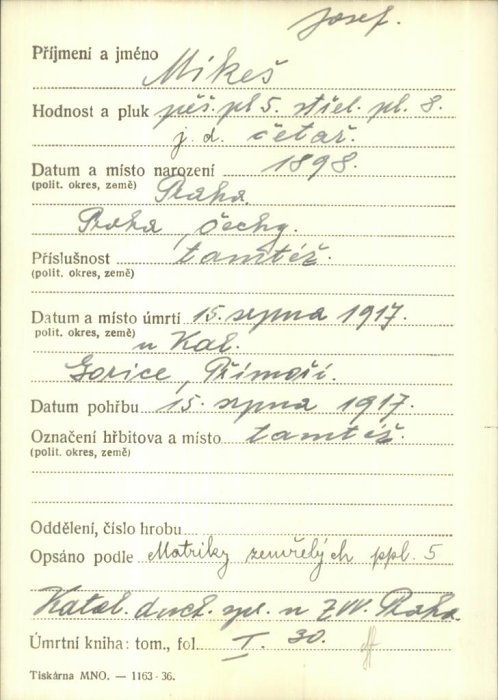 Josef.
Příjmení a jméno Mikeš
Hodnost a pluk pěš. pl 5. střel. pl. 8.
j. d. četař.
Datum a místo narození 1898.
(polit. okres, země) Praha,
Praha, Čechy.
Příslušnost tamtéž.
(polit. okres, země)
Datum a místo úmrtí 15. srpna 1917.
polit. okres, země) u Kal.
Gorice, Přímoří.
Datum pohřbu 15. srpna 1917.
Označení hřbitova a místo tamtéž.
(polit. okres, země)
Oddělení, číslo hrobu
Opsáno podle Matriky zemřelých ppl. 5
Katol. duch. spr. u ZVV. Praha.
Úmrtní kniha: tom., fol. I. 30.
Tiskárna MNO. — 1163 - 36.